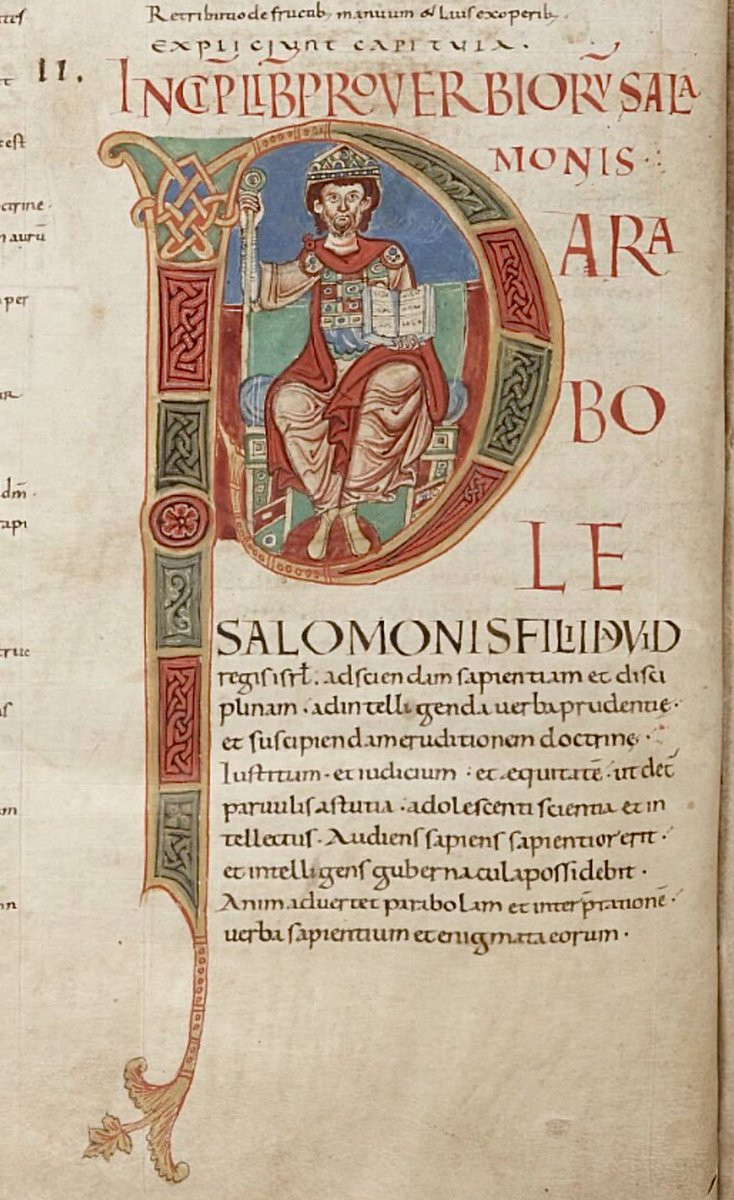 Retributio de fructib, manuum & Luis ex operib,
EXPLICIUNT CAPITULA.
II.
INCIP LIB PROVERBIORŪ SALA
MONIS
PARA
BO
LE
SALOMONIS FILII DAVID
regis isrl. ad sciendam sapientiam et disci
plinam. ad intellegenda verba prudentię.
et suscipiendam eruditionem doctrinę.
Iustitiam. et iudicium. et ęquitatē. ut det̄
parvulis astutia. adolescenti scientia et in
tellectus. Audiens sapiens sapientior erit.
et intelligens gubernacula possidebit.
Animadvertet parabolam et interp̄tationē.
verba sapientium et enigmata eorum.